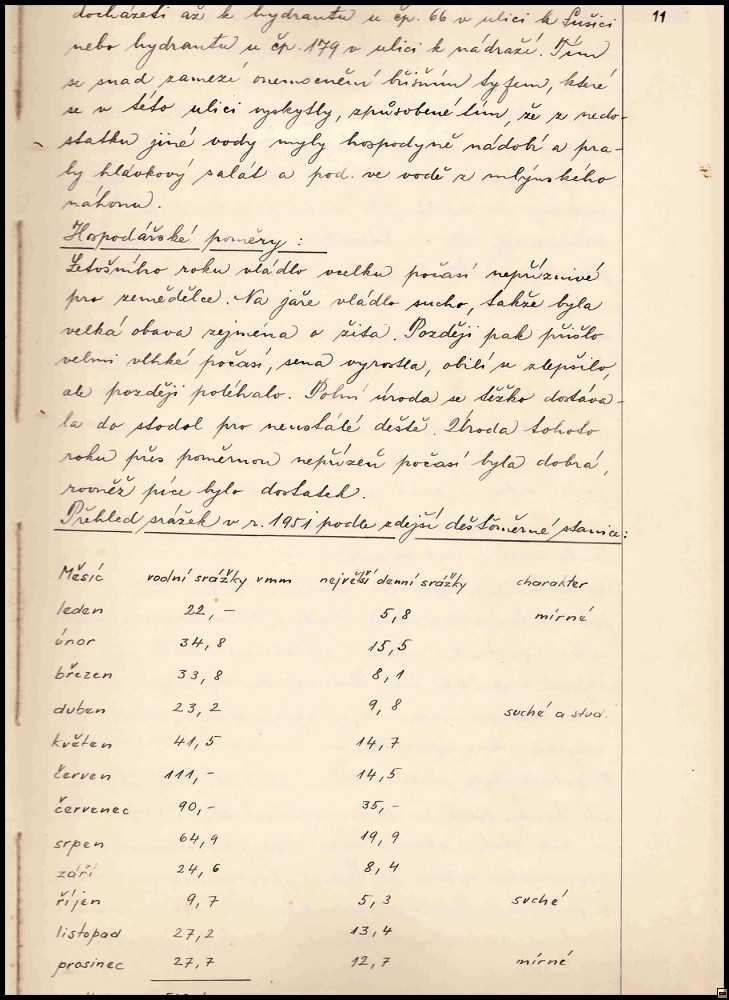 11
docházeti až k hydrantu u čp. 66 v ulici k Sušici
nebo hydrantu u čp. 179 v ulici k nádraží. Tím
se snad zamezí onemocnění břišním tyfem, které
se v této ulici vyskytly, způsobené tím, že z nedo-
statku jiné vody myly hospodyně nádobí a pra-
ly hlávkový salát a pod. ve vodě z mlýnského
náhonu.
Hospodářské poměry :
Letošního roku vládlo vcelku počasí nepříznivé
pro zemědělce. Na jaře vládlo sucho, takže byla
velká obava zejména o žita. Později pak přišlo
velmi vlhké počasí, sena vyrostla, obilí se zlepšilo,
ale později poléhalo. Polní úroda se těžko dostáva-
la do stodol pro neustálé deště. Úroda tohoto
roku přes poměrnou nepřízeň počasí byla dobrá,
rovněž píce bylo dostatek.
Přehled srážek v r. 1951 podle zdejší dešťoměrné stanice:
Měsíc vodní srážky v mm největší denní srážky charakter
leden 22,- 5,8 mírné
únor 34,8 15,5
březen 33,8 8,1
duben 23,2 9,8 suché a stud.
květen 41,5 14,7
červen 111,- 14,5
červenec 90,- 35,-
srpen 64,9 19,9
září 24,6 8,4
říjen 9,7 5,3 suché
listopad 27,2 13,4
prosinec 27,7 12,7 mírné